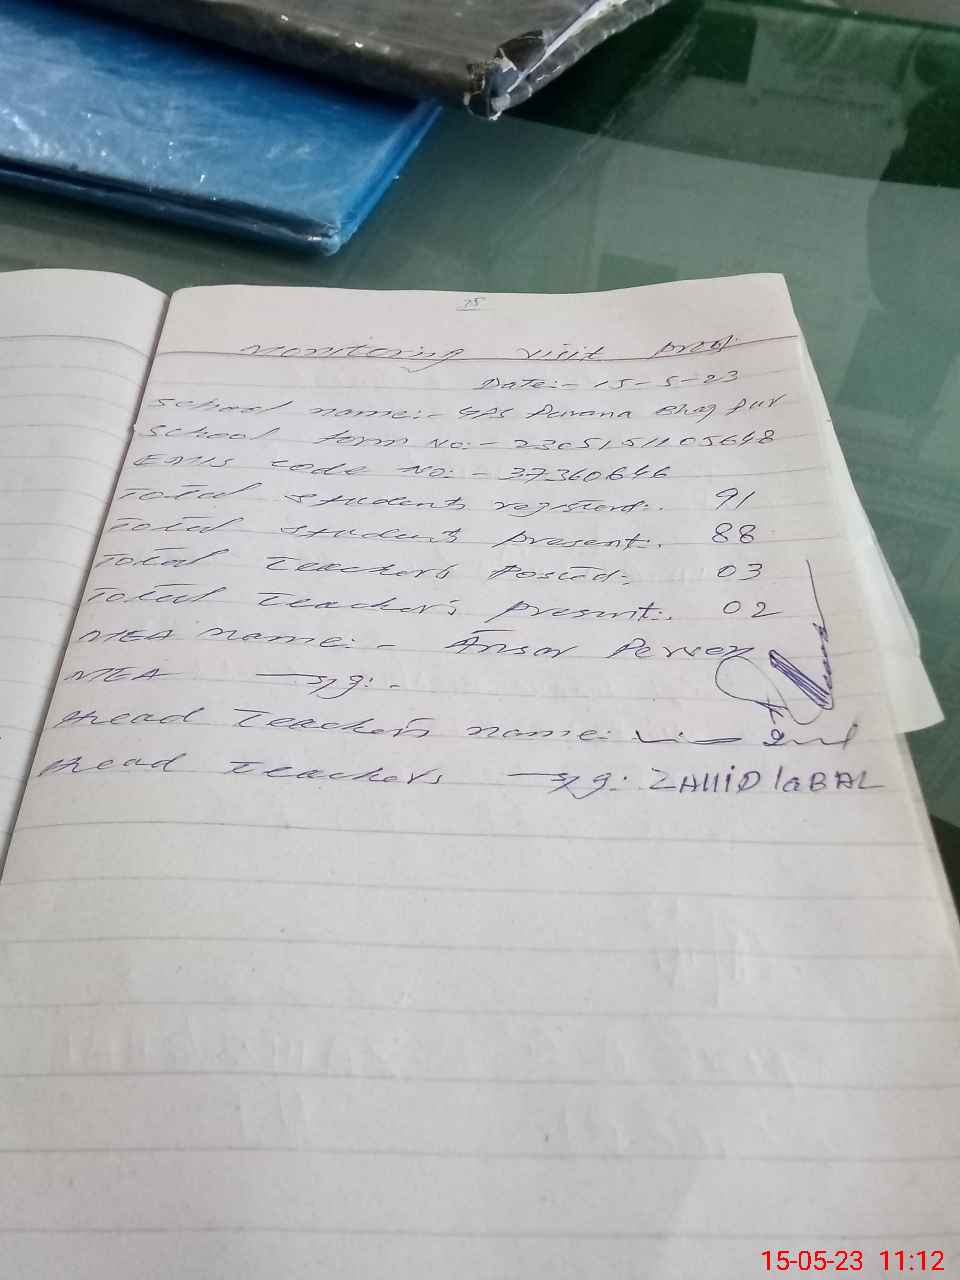 75
Monitoring visit proof.
Date:- 15-5-23
School name:- GPS Purana Bhag Pur
School form No:- 2305151105648
EMIS code No:- 37360646
Total students registerd:. 91
Total students present:. 88
Total Teachers Posted:- 03
Total Teachers present:. 02
MEA name:- Ansar Pervez
MEA sig:-
Head Teachers name:
Head Teachers sig: ZAHID IQBAL
15-05-23 11:12